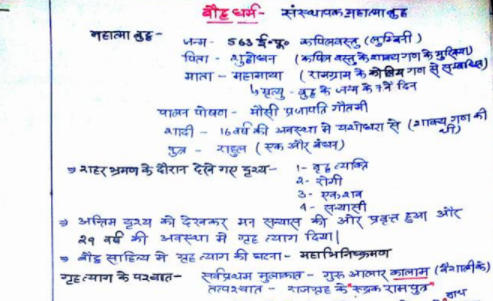 बौद्ध धर्म - संस्थापक महात्मा बुद्ध
महात्मा बुद्ध - जन्म - 563 ई०पू० कपिलवस्तु (लुम्बिनी)
पिता - शुद्धोधन (कपिलवस्तु के शाक्य गण के मुखिया)
माता - महामाया (रामग्राम के कोलिय गण से सम्बन्धित)
↳ मृत्यु - बुद्ध के जन्म के 7वें दिन
पालन पोषण - मौसी प्रजापति गौतमी
शादी - 16 वर्ष की अवस्था में यशोधरा से (शाक्य गण की थी)
पुत्र - राहुल (एक और बंधन)
⇒ शहर भ्रमण के दौरान देखे गए दृश्य - 1- वृद्ध व्यक्ति
2- रोगी
3- एक शव
4- सन्यासी
⇒ अन्तिम दृश्य को देखकर मन सन्यास की ओर प्रवृत्त हुआ और
29 वर्ष की अवस्था में गृह त्याग दिया।
⇒ बौद्ध साहित्य में गृह त्याग की घटना - महाभिनिष्क्रमण
गृहत्याग के पश्चात - सर्वप्रथम मुलाकात - गुरु आलार कालाम (वैशाली के)
तत्पश्चात - राजगृह के "रुद्रक रामपुत्र"